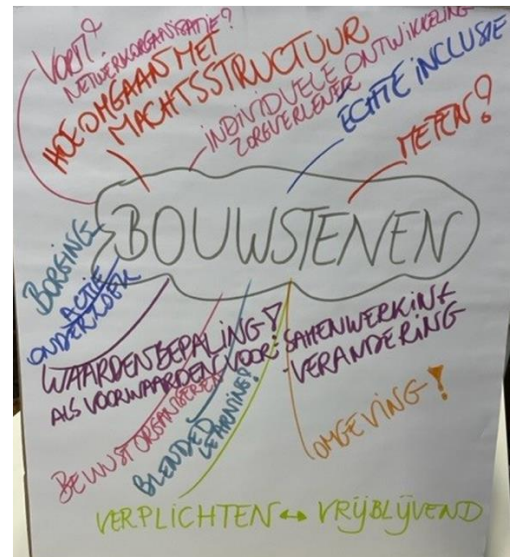 VORM?
NETWERKORGANISATIE?
HOE OMGAAN MET
MACHTSSTRUCTUUR
INDIVIDUELE ONTWIKKELING
ZORGVERLENER
ECHTE INCLUSIE
METEN?
BOUWSTENEN
BORGING
ACTIE
ONDERZOEK
WAARDENBEPALING!
ALS VOORWAARDEN VOOR: SAMENWERKING
-VERANDERING
BEWUST ORGANISEREN
BLENDED
LEARNING!
OMGEVING!
VERPLICHTEN ↔ VRIJBLIJVEND